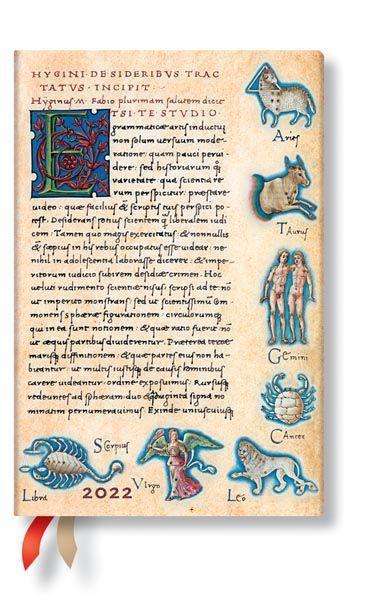 HYGINI · DE SIDERIBVS TRAC
TATVS · INCIPIT ·
Hyginus M. Fabio plurimam salutem dicit
ETSI · TE STVDIO ·
grammaticæ artis inductu
non solum versuum mode-
ratione · quam pauci pervi-
dere : sed historiarum q
varietate · qua scientia re
rum perspicitur · præstare
video · quæ facilius & scriptis tuis perspici po-
test. Desiderans potius scientem q liberalem iudi
cem. Tamen quo magis exercitatus · & nonnullis
& sæpius in his rebus occupatus esse videar · ne-
nihil in adolescentia laborasse dicerer · & impe-
ritorum iudicio subirem desidiæ crimen. Hoc
veluti rudimento scientiæ nisus · scripsi ad te · nō
ut imperito monstrans · sed ut scientissimū
mones sphæræ figurationem · circulorumq
qui in ea sunt notionem · & quæ ratio fuerit · nō
ut æquis partibus dividerentur. Præterea terræ
marisq diffinitionem · & quæ partes eius non ha-
bitantur · ut multis iustisq de causis hominibus
carere videantur · ordine exposuimus. Rursusq
redeuntes ad sphæram duo & quadraginta signa no
minatim pernumeravimus. Exinde uniuscuiusq
Aries
Taurus
Gemini
Cancer
Scorpius
Virgo
Libra
2022
Leo